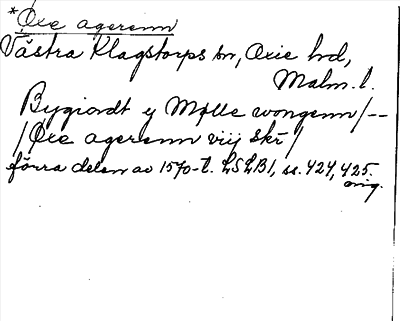 *Oxe agerenn
Västra Klagstorps sn, Oxie hd,
Malm. l.
Bygiordt y Mølle wongenn/--
/Oxe agerenn viij skr/
förra delen av 1570-t. LSLB1, ss. 424, 425.
orig.